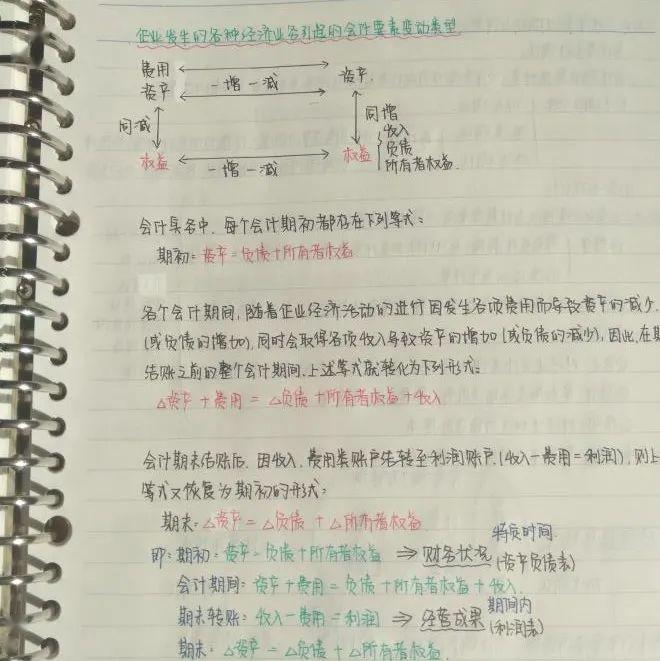 企业发生的各种经济业务引起的会计要素变动类型
费用 资产
资产 一增一减
同减 同增
收入
权益 一增一减 权益 负债
所有者权益.
会计实务中, 每个会计期初都存在下列等式:
期初: 资产=负债+所有者权益
各个会计期间, 随着企业经济活动的进行因发生各项费用而导致资产的减少.
(或负债的增加), 同时会取得各项收入导致资产的增加(或负债的减少), 因此, 在期
结账之前的整个会计期间, 上述等式就转化为下列形式:
△资产 + 费用 = △负债+所有者权益+收入
会计期末结账后, 因收入、费用类账户结转至利润账户, (收入-费用=利润), 则上
等式又恢复为期初的形式:
期末: △资产 = △负债 + △所有者权益.
特质时间.
即: 期初: 资产=负债+所有者权益 ⇒ 财务状况 (资产负债表)
会计期间: 资产+费用=负债+所有者权益+收入.
期间内
期末转账: 收入-费用=利润 ⇒ 经营成果 (利润表)
期末: △资产=△负债+△所有者权益.